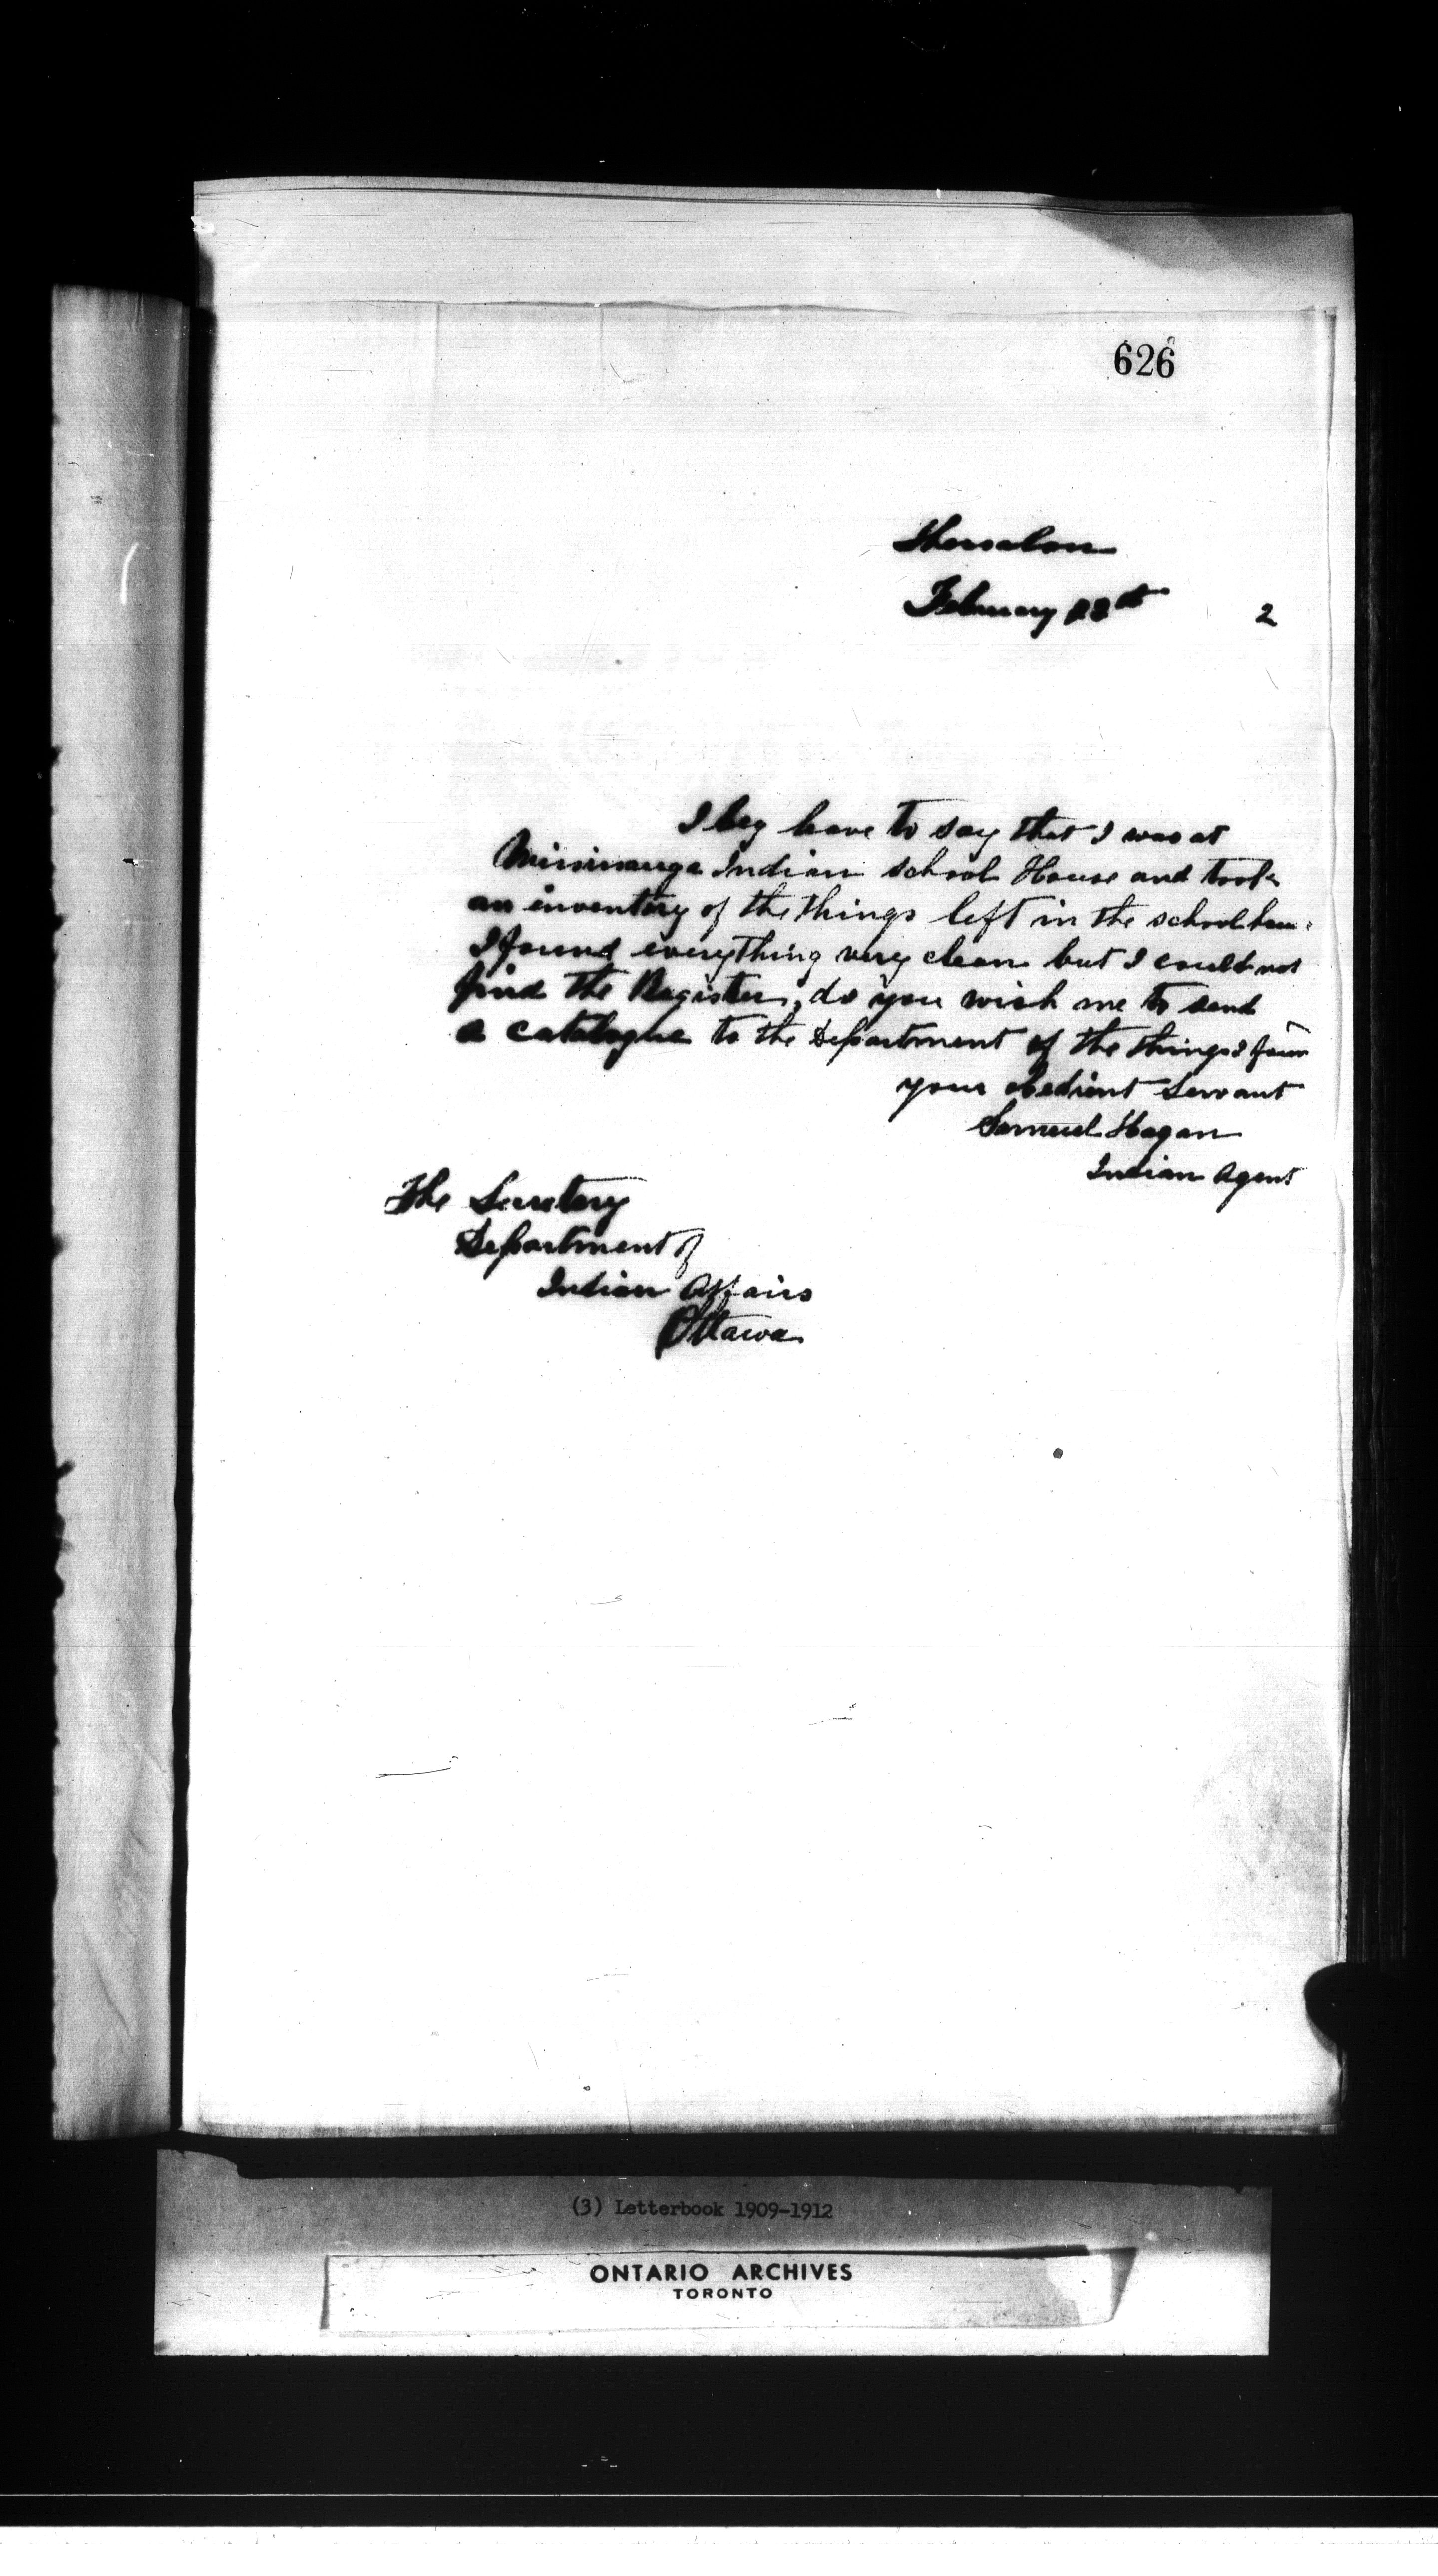 626
Thessalon
February 28th 2
I beg leave to say that I was at
Mississauga Indian school House and took
an inventory of the things left in the school
I found everything very clean but I could not
find the Register, do you wish me to send
a catalogue to the Department of the things I
your obedient Servant
Samuel Hagan
Indian Agent
The Secretary
Department of
Indian Affairs
Ottawa
(3) Letterbook 1909-1912
ONTARIO ARCHIVES
TORONTO